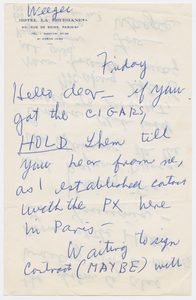 Weegee
HOTEL LA LOUISIANE
60, RUE DE SEINE, PARIS-6e
Friday
Hello dear — if you
got the CIGARS,
HOLD them till
you hear from me,
as I established
with the PX here
in Paris —
Waiting to sign
Contract (MAYBE) with